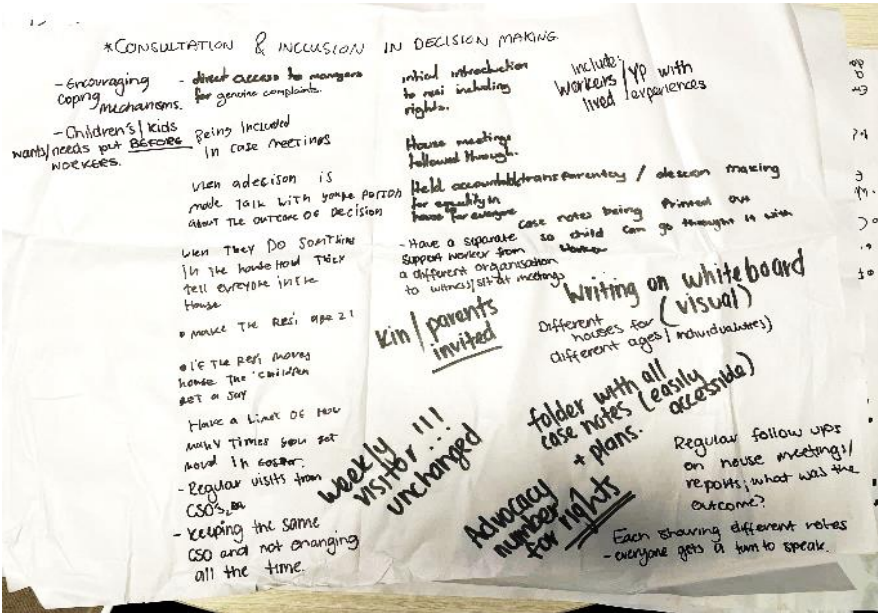 *CONSULTATION & INCLUSION IN DECISION MAKING
- Encouraging
coping
mechanisms.
- Children's/kids
wants/needs put BEFORE
WORKERS.
- direct access to managers
for genuine complaints.
Being Included
In case meetings
when a decison is
made Talk with
about The outcome of Decision
when They DO
In The
Tell everyone in the
House
• make The Resi age 21
• if The Resi moves
house The children
get a say
Have a Limet of how
many Times you get
movd in foster.
- Regular visits from
CSO's,
- keeping the same
CSO and not changing
all the time.
initial introduction
to resi including
rights.
House meetings
followed through.
Held accountable/transparentcy / making
for equality in
house for everyone
case notes being Printed out
so child can go it with
- Have a separate
support worker from
a different organisation
to witness/sit at meetings
Include:
Workers/YP with
lived experiences
kin/parents
invited
Writing on whiteboard
(visual)
Different
houses for
different ages/
folder with all
case notes (easily
accessible)
+ plans.
Weekly
visitor!!!
unchanged
Advocacy
number
for rights
Regular follow ups
on house meetings/
reports; what was the
outcome?
Each sharing different notes
- everyone gets a turn to speak.